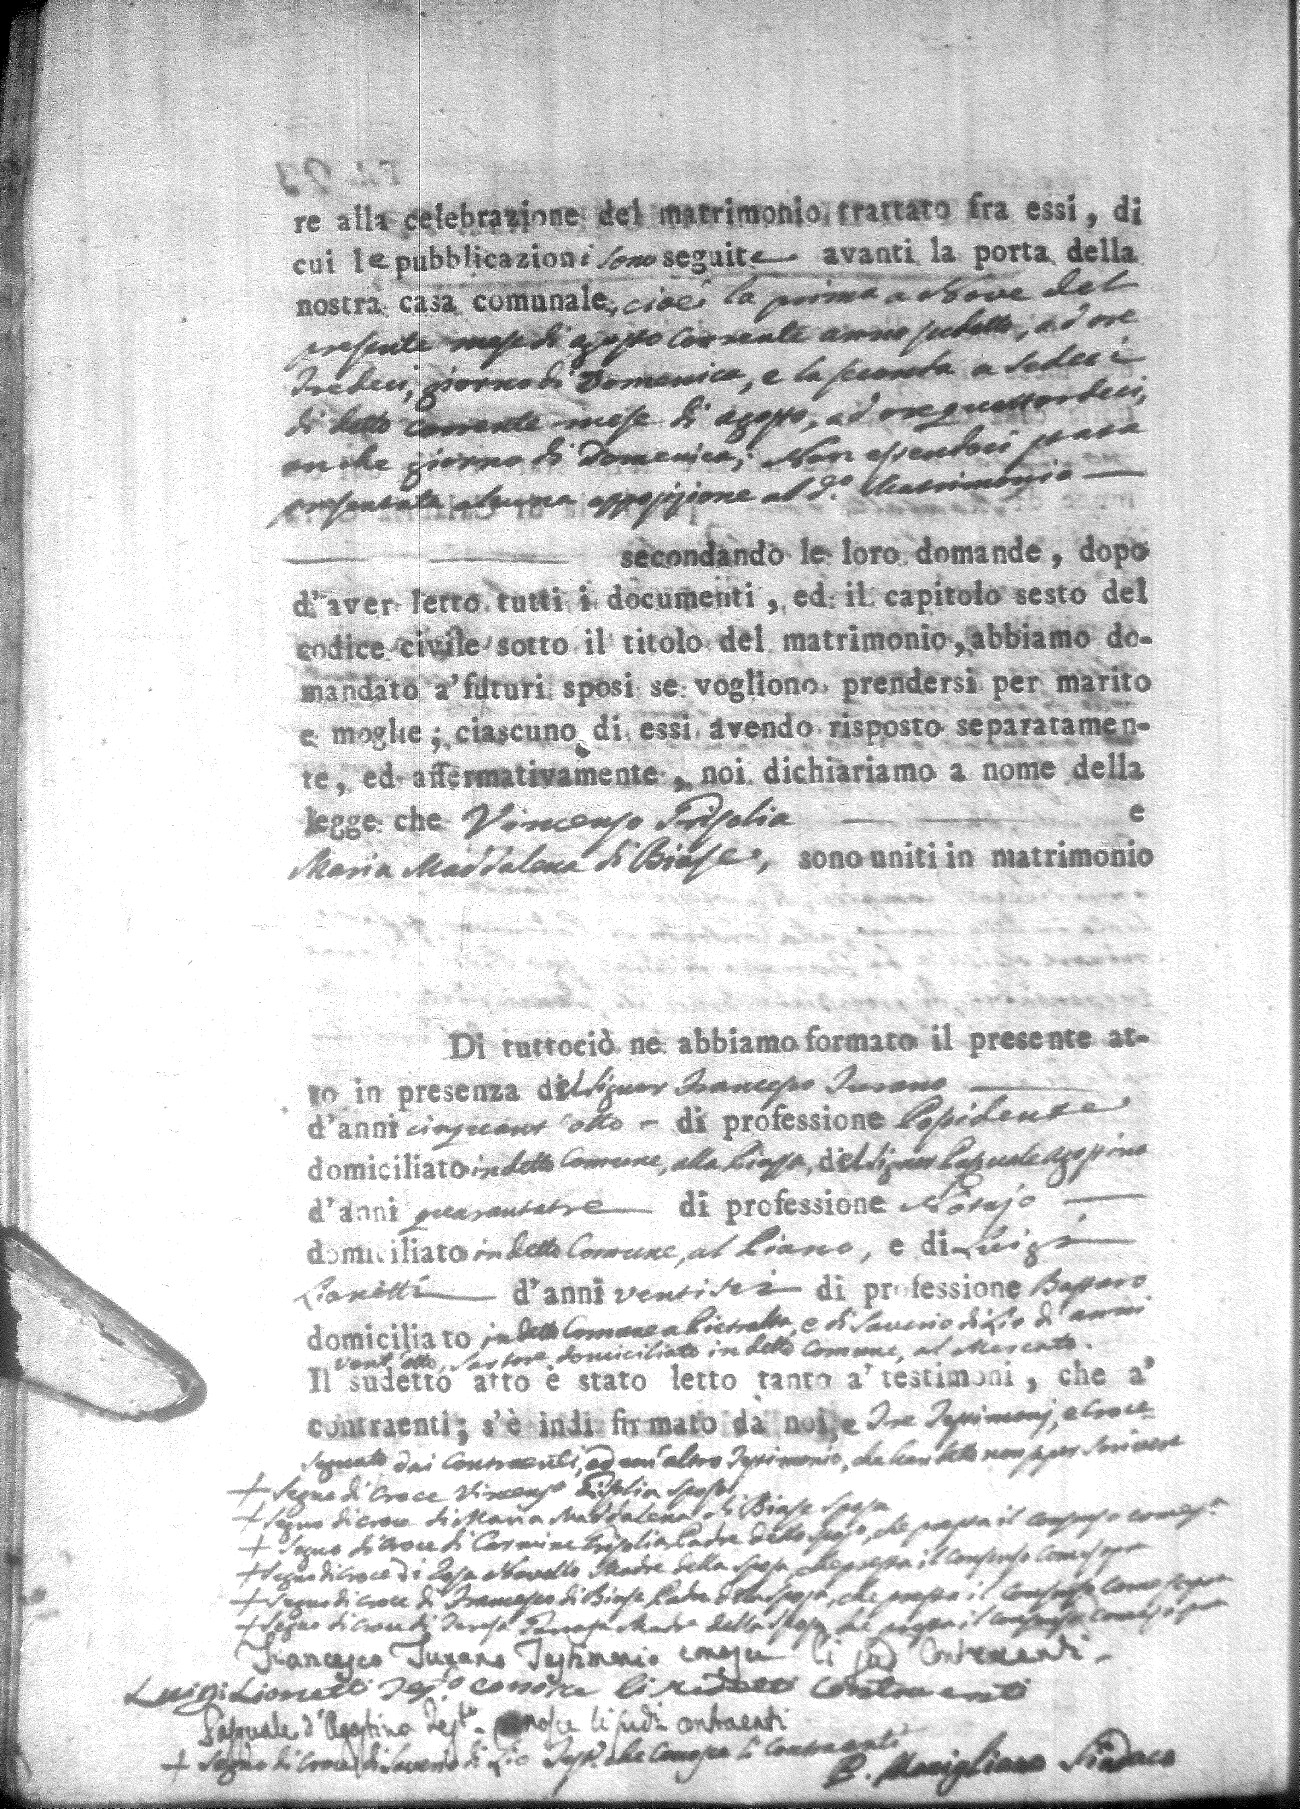 re alla celebrazione del matrimonio trattato fra essi, di
cui le pubblicazioni sono seguite avanti la porta della
nostra casa comunale, cioè la prima a Nove del
presente mese di agosto corrente anno sudetto, ad ore
Tredeci, giorno di Domenica, e la seconda a Sedeci
di detto corrente mese di agosto, ad ore quattordeci,
anche giorno di Domenica; Non essendosi
presentata alcuna opposizione al d.º Matrimonio
secondando le loro domande, dopo
d'aver letto tutti i documenti, ed il capitolo sesto del
codice civile sotto il titolo del matrimonio, abbiamo do-
mandato a' futuri sposi se vogliono prendersi per marito
e moglie; ciascuno di essi avendo risposto separatamen-
te, ed affermativamente, noi dichiariamo a nome della
legge che Vincenzo Grisolia e
Maria Maddalena di Biase, sono uniti in matrimonio
Di tuttociò ne abbiamo formato il presente at-
to in presenza del Signor Francesco Turano
d'anni cinquant'otto di professione
domiciliato in detto Comune, alla Piazza, del Signor Pasquale Agostino
d'anni quarantatre di professione Notajo
domiciliato in detto Comune, al Piano, e di Luigi
Lionetti d'anni ventisei di professione
domiciliato in detto Comune a e di Saverio di Lio d'anni
vent'otto, Sartore domiciliato in detto Comune, al Mercato.
Il sudetto atto è stato letto tanto a' testimoni, che a'
contraenti; s'è indi firmato da noi, e Tre Testimonj, e Croce
segnato dai Contraenti, ed un'altro Testimonio, che han detto non saper scrivere
+ Segno di Croce Vincenzo Grisolia sposo
+ Segno di croce di Maria Maddalena di Biase sposa
+ Segno di Croce di Carmine Grisolia Padre dello sposo, che presta il consenso come s.ª
+ Segno di Croce di Rosa Novello Madre dello sposo che presta il Consenso come sopra
+ Segno di croce di Francesco di Biase Padre della sposa, che presta il Consenso come sopra
+ Segno di Croce di Teresa Madre della sposa che presta il Consenso come sopra
Francesco Turano Testimonio conosce li sud. Contraenti
Luigi Lionetti Test.º conosce li sudetti contraenti
Pasquale d'Agostino Test.º conosce li sud.i contraenti
+ Segno di Croce di Saverio di Lio Test.º che conosce li Contraenti
B. Maniglians Sindaco